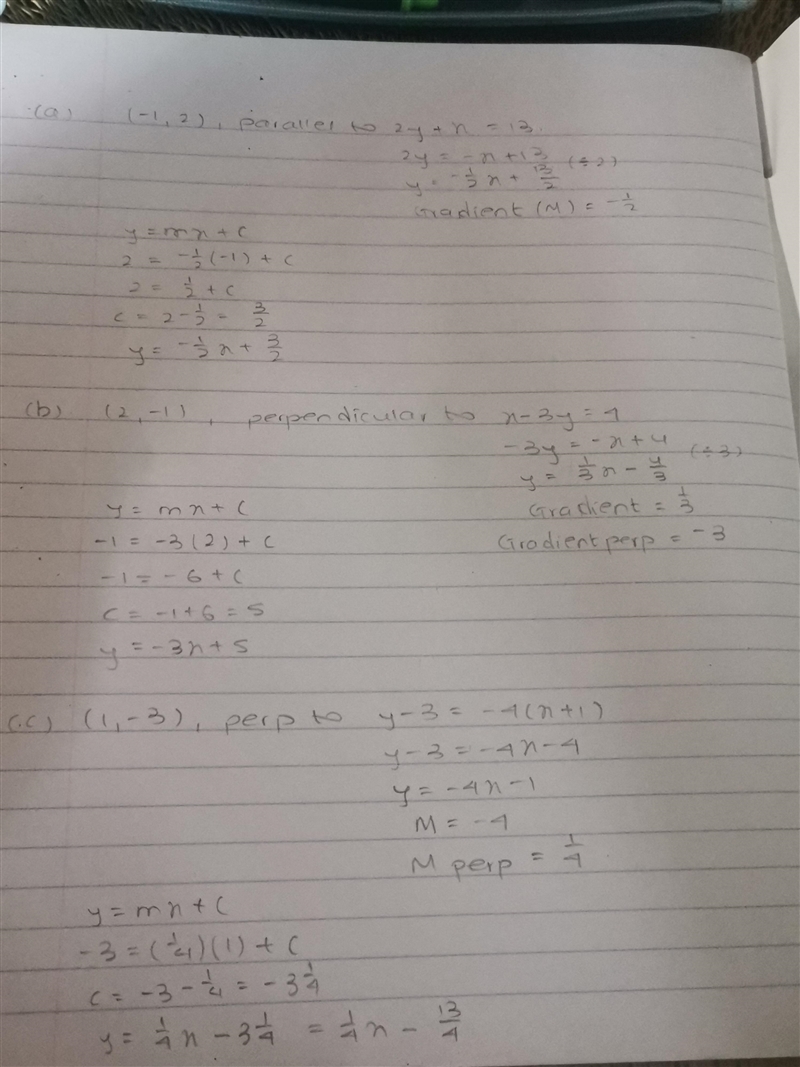 (a) (-1, 2), parallel to 2y + x = 13.
2y = -x + 13 (÷2)
y = -1/2 x + 13/2
Gradient (M) = -1/2
y = mx + c
2 = -1/2 (-1) + c
2 = 1/2 + c
c = 2 - 1/2 = 3/2
y = -1/2 x + 3/2
(b) (2, -1), perpendicular to x - 3y = 4
-3y = -x + 4 (÷3)
y = 1/3 x - 4/3
Gradient = 1/3
Gradient perp = -3
y = mx + c
-1 = -3(2) + c
-1 = -6 + c
c = -1 + 6 = 5
y = -3x + 5
(c) (1, -3), perp to y - 3 = -4(x + 1)
y - 3 = -4x - 4
y = -4x - 1
M = -4
M perp = 1/4
y = mx + c
-3 = (1/4)(1) + c
c = -3 - 1/4 = -3 1/4
y = 1/4 x - 3 1/4 = 1/4 x - 13/4